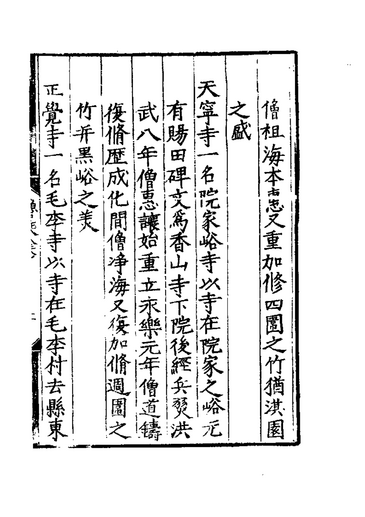 僧祖海本惠又重加修四圍之竹猶淇園
之盛
天寧寺一名院家峪寺以寺在院家之峪元
有賜田碑文爲香山寺下院後經兵燹洪
武八年僧惠讓始重立永樂元年僧道鑄
復脩歴成化間僧淨海又復加脩週圍之
竹并黑峪之羙
正覺寺一名毛李寺以寺在毛李村去縣東